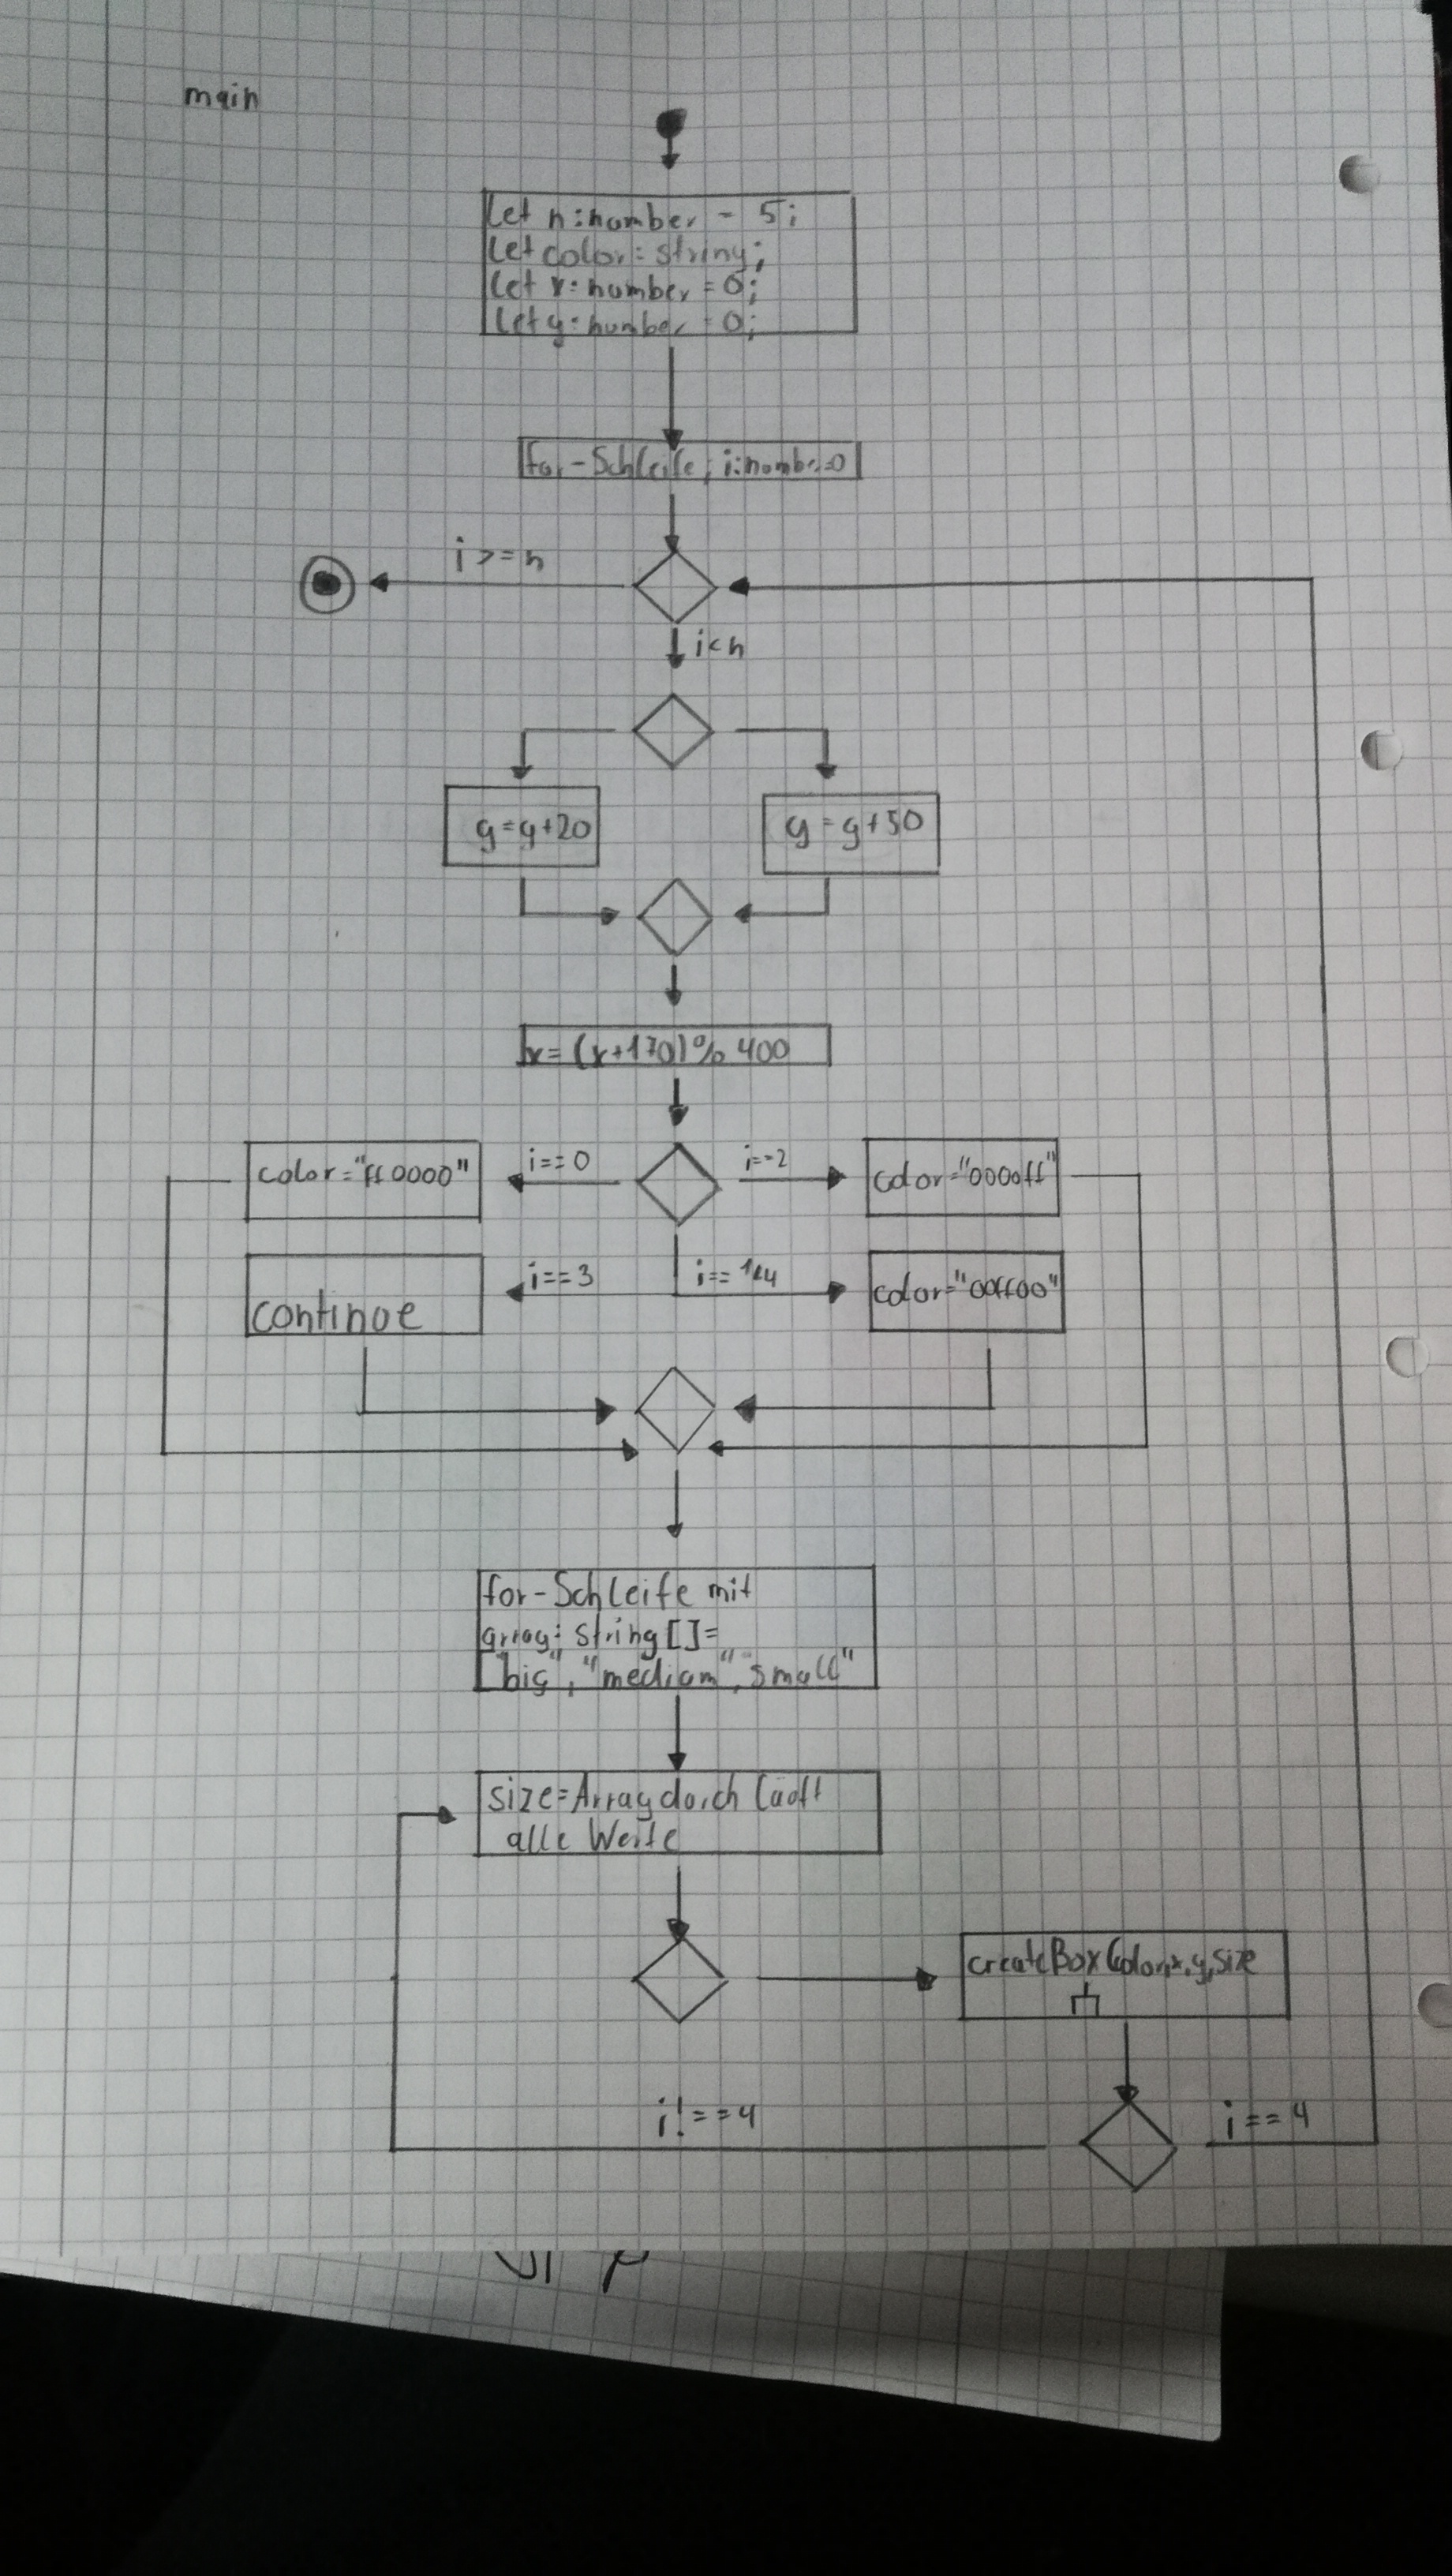 main
let n:number = 5;
let color: string;
let x: number = 0;
let y: number = 0;
for-Schleife; i:number=0
i>=n
i<n
y=y+20
y=y+50
x=(x+170)%400
color="ff0000"
i==0
i==2
color="0000ff"
continue
i==3
i== 1&4
color="00ff00"
for-Schleife mit
array: String[]=
["big", "medium", "small"
size=Array durchläuft
alle Werte
createBox color,x,y,size
i!==4
i==4